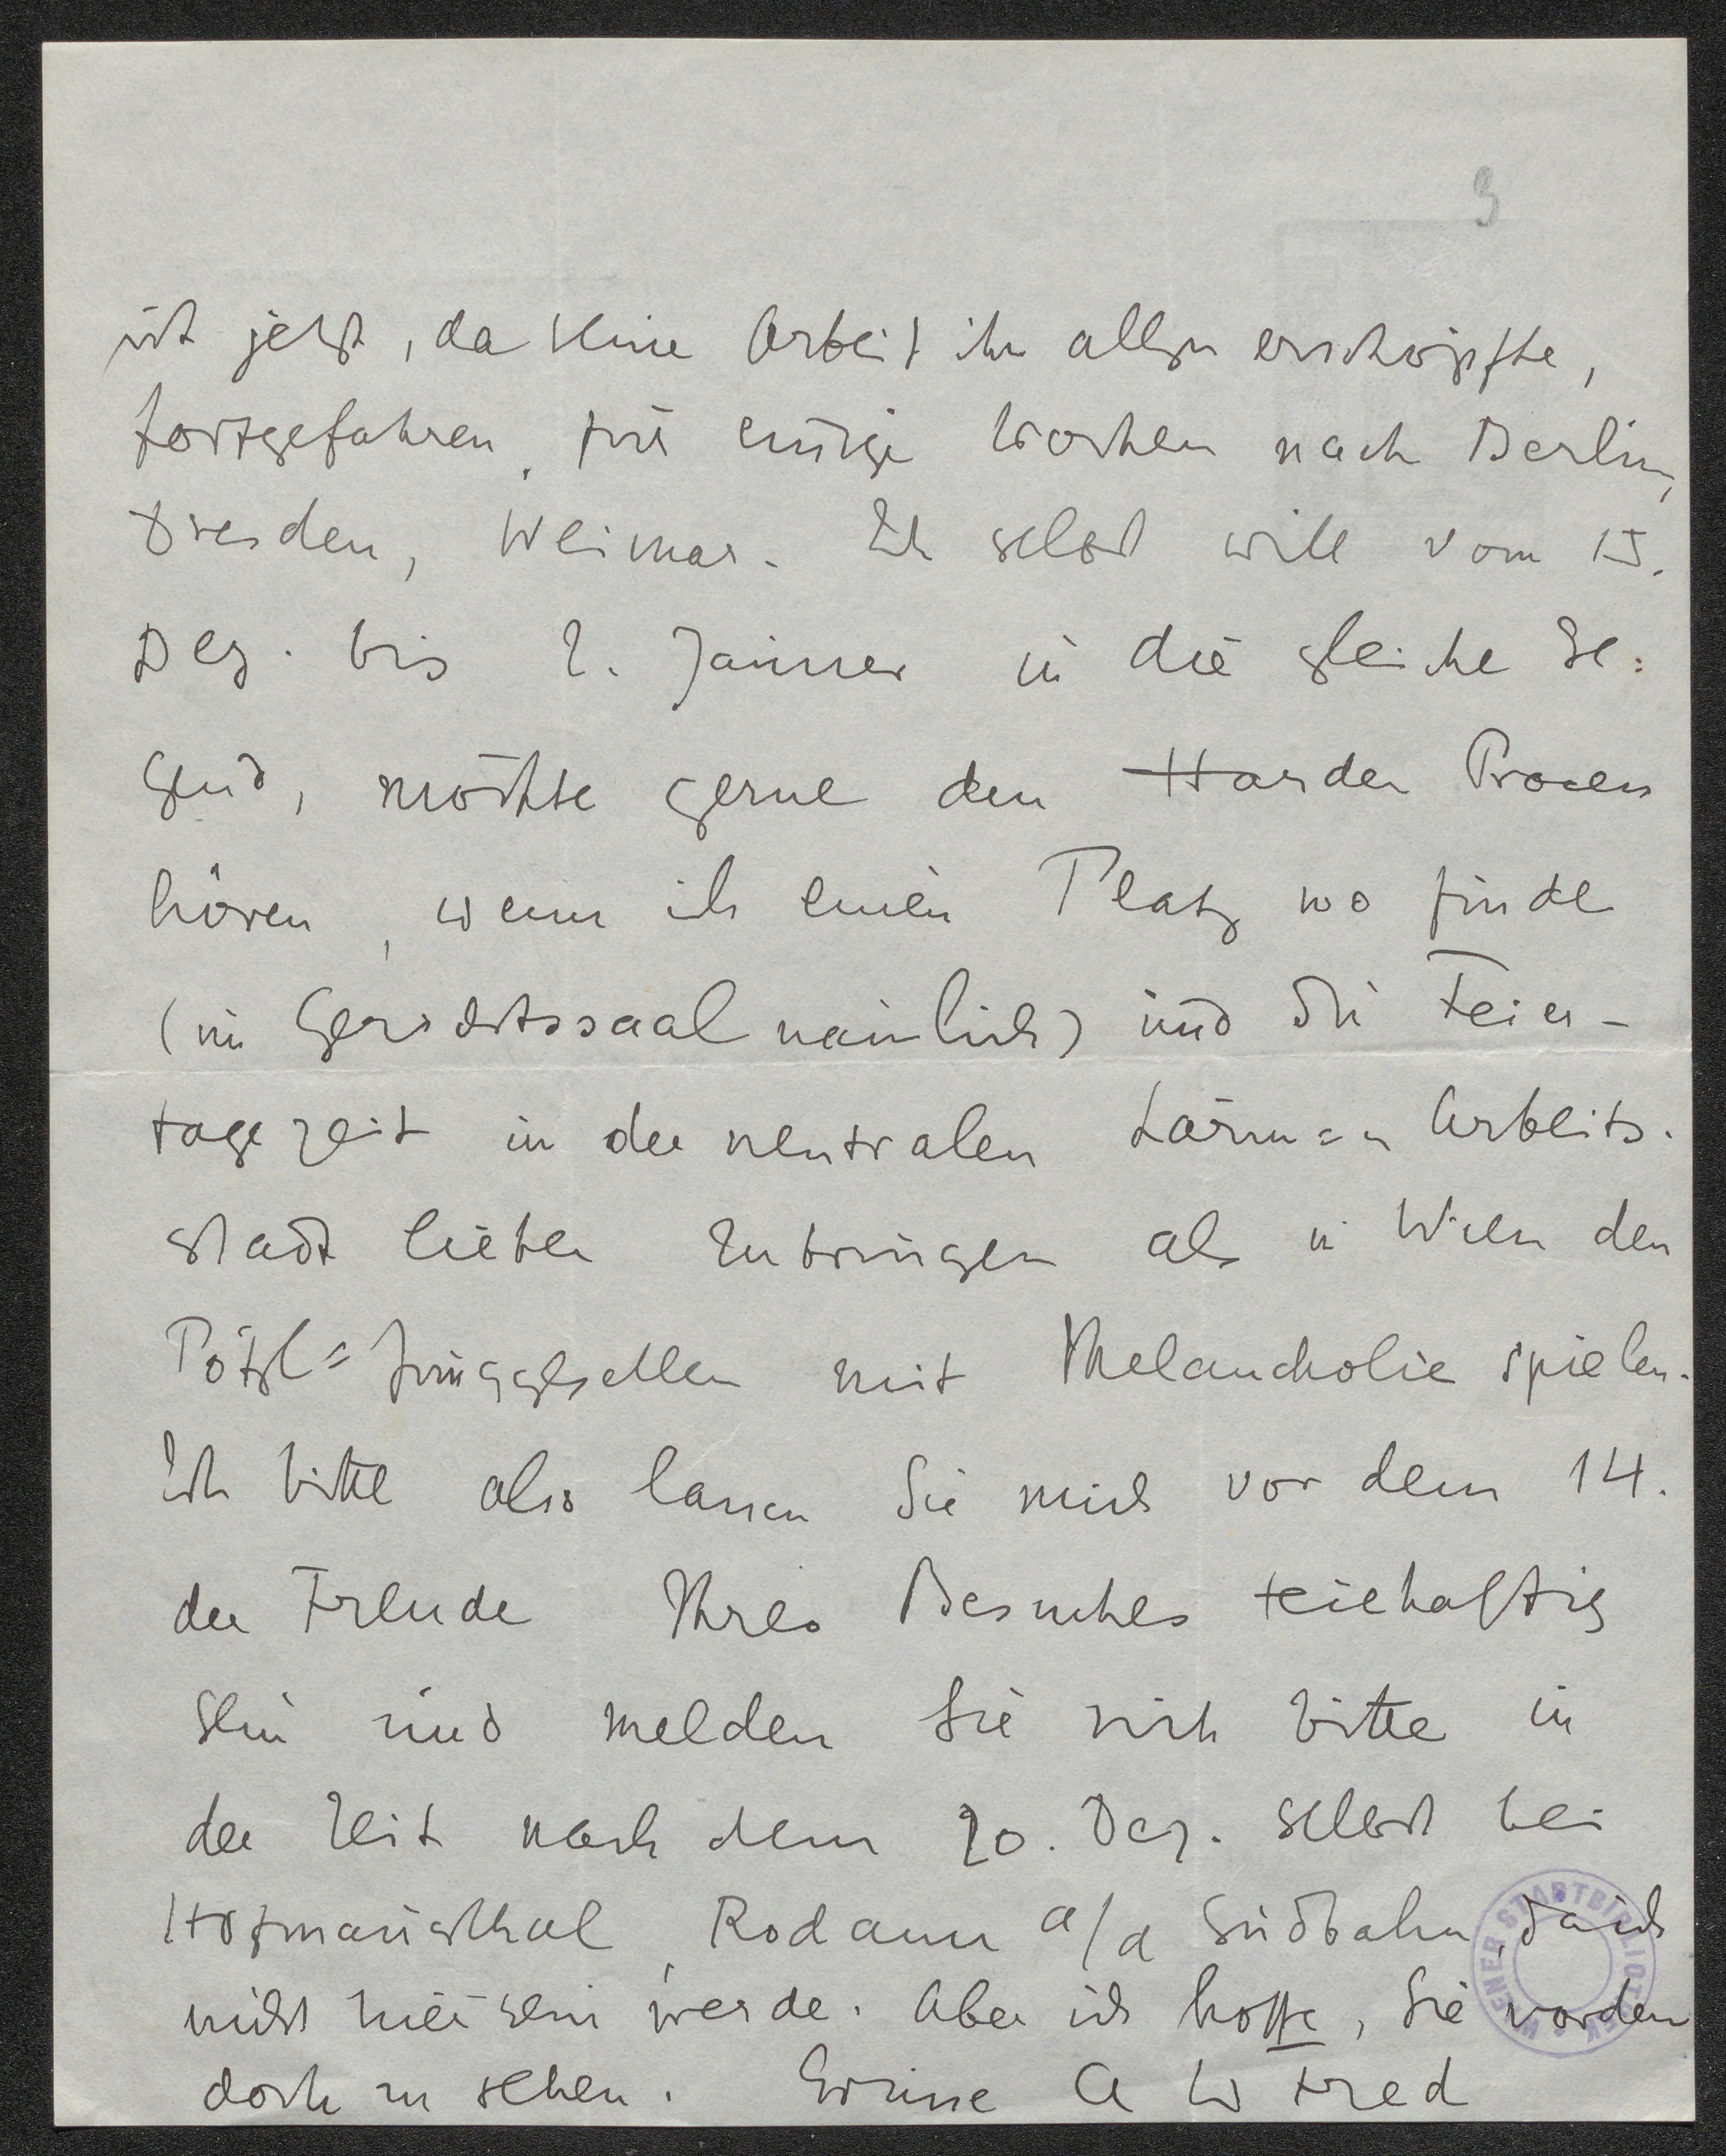 3
ist jetzt, da seine Arbeit ihn allzu erschöpfte,
fortgefahren, für einige Wochen nach Berlin,
Dresden, Weimar. Ich selbst will vom 15.
Dez. bis 2. Jänner in die gleiche Ge:
gend, möchte gerne den Harden Process
hören, wenn ich einen Platz wo finde
(im Gerichtssaal nämlich) und die Feier-
tagezeit in der neutralen Lärm= u Arbeits-
stadt lieber zubringen als in Wien den
Pötzl=Junggesellen mit Melancholie spielen.
Ich bitte also lassen Sie mich vor dem 14.
der Freude Ihres Besuches teilhaftig
sein und melden Sie sich bitte in
der Zeit nach dem 20. Dez. selbst bei
Hofmannsthal, Rodaun a/d Südbahn, da ich
nicht hier sein werde. Aber ich hoffe, Sie vordem
doch zu sehen. Grüsse A W Fred
WIENER STADTBIBLIOTHEK